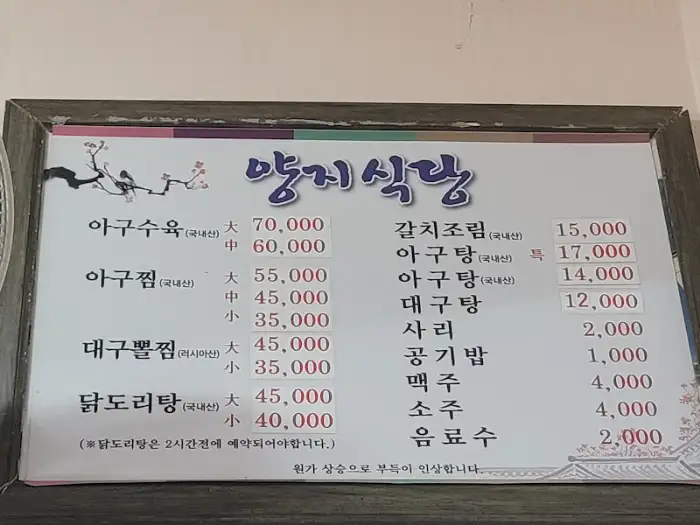 양지식당
아구수육(국내산) 大 70,000
中 60,000
아구찜(국내산) 大 55,000
中 45,000
小 35,000
대구뽈찜(러시아산) 大 45,000
小 35,000
닭도리탕(국내산) 大 45,000
小 40,000
(※닭도리탕은 2시간전에 예약되어야합니다.)
갈치조림(국내산) 15,000
아구탕(국내산) 특 17,000
아구탕(국내산) 14,000
대구탕 12,000
사리 2,000
공기밥 1,000
맥주 4,000
소주 4,000
음료수 2,000
원가 상승으로 부득이 인상합니다.